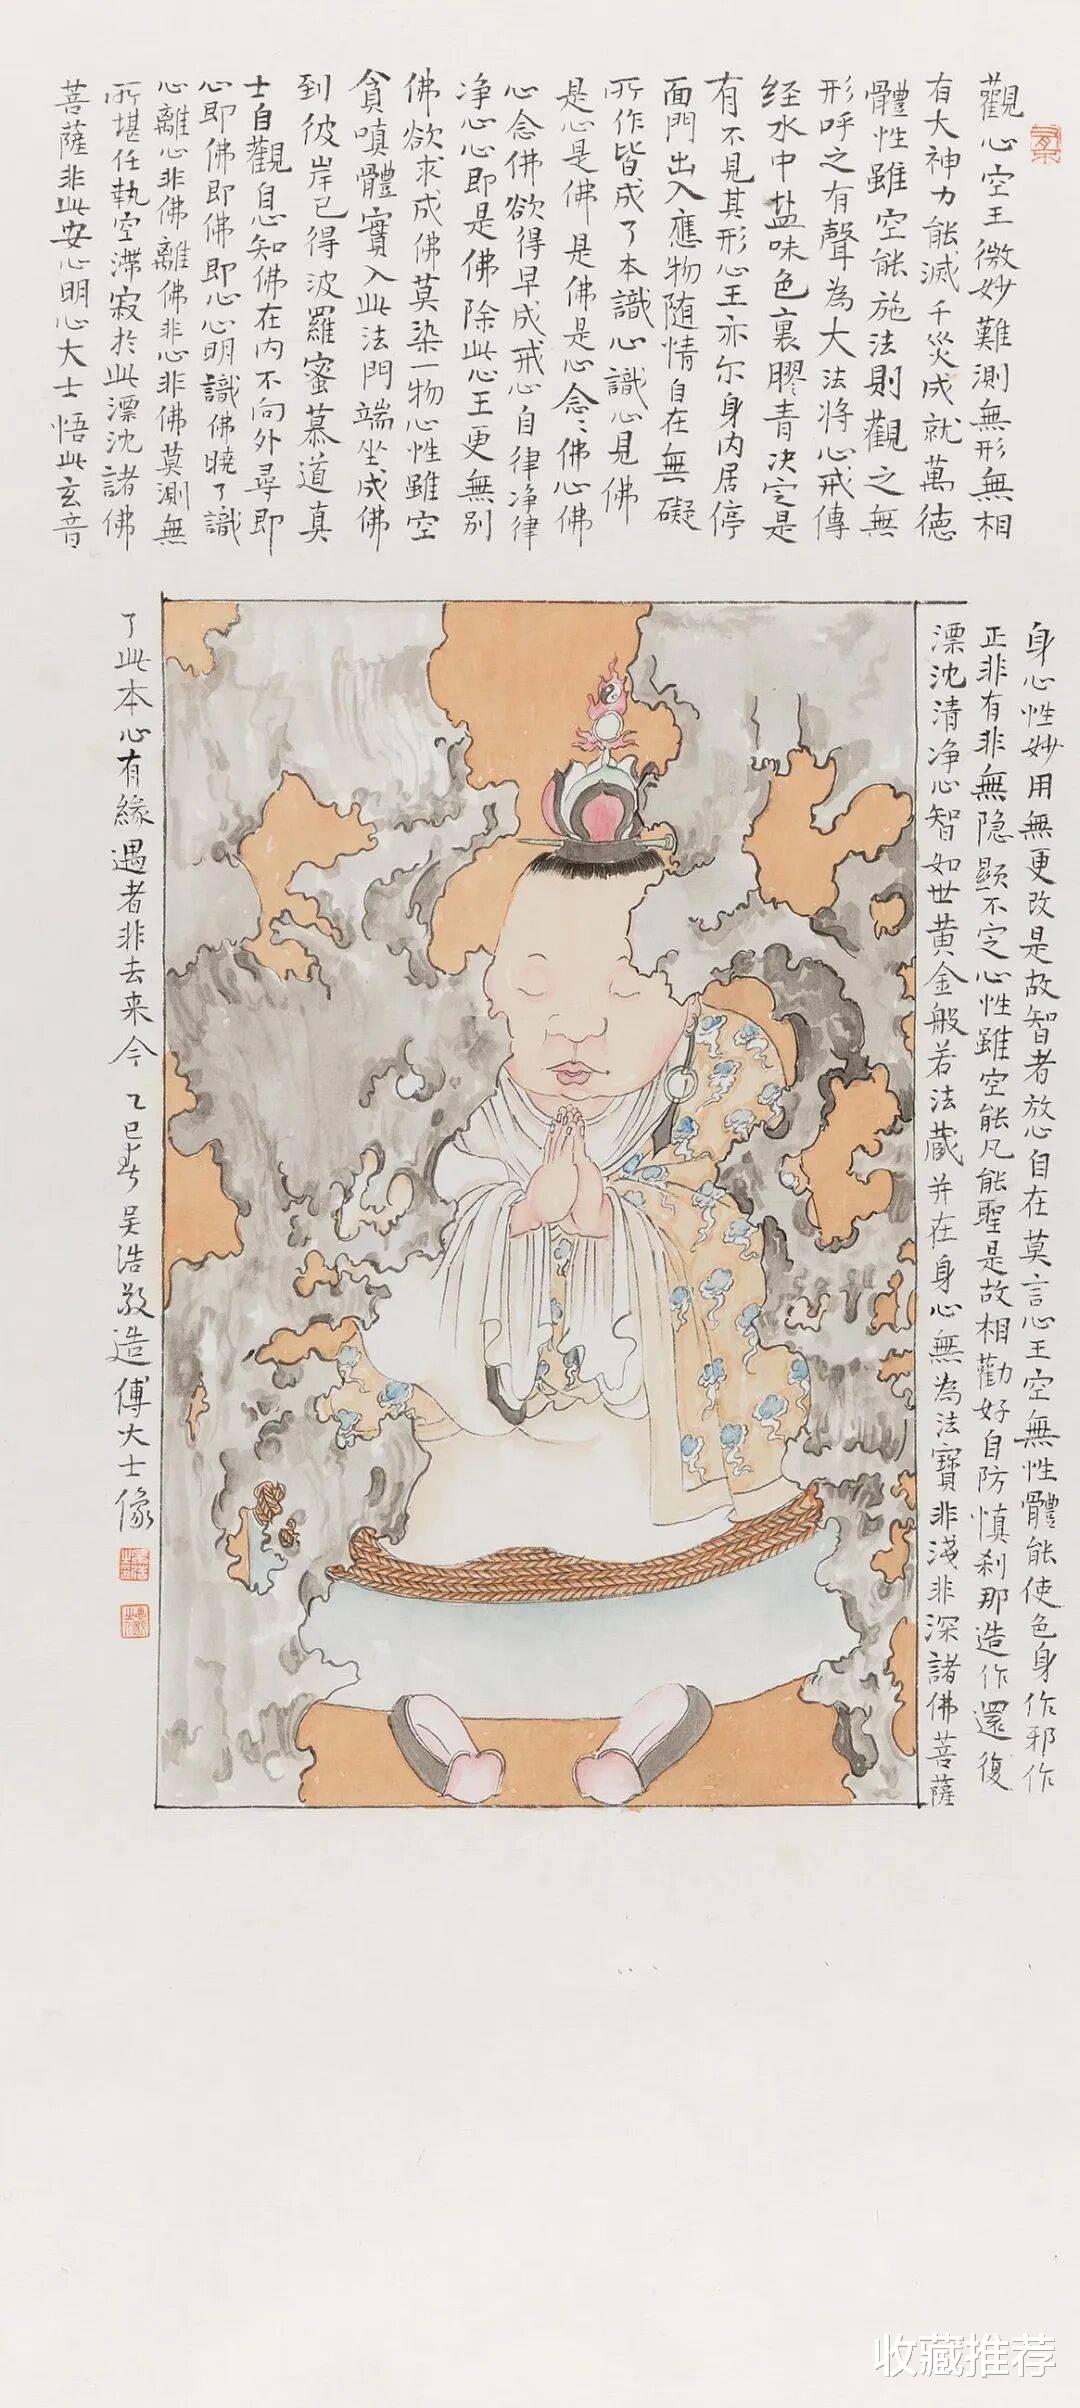 觀心空王微妙難測無形無相
有大神力能滅千災成就萬德
體性雖空能施法則觀之無
形呼之有聲為大法將心戒傳
经水中盐味色裏膠青决定是
有不見其形心王亦尔身内居停
面門出入應物随情自在無礙
所作皆成了本識心識心見佛
是心是佛是佛是心念〻佛心佛
心念佛欲得早成戒心自律净律
净心心即是佛除此心王更無別
佛欲求成佛莫染一物心性雖空
貪嗔體實入此法門端坐成佛
到彼岸已得波羅蜜慕道真
士自觀自心知佛在内不向外尋即
心即佛即佛即心心明識佛曉了識
心離心非佛離佛非心非佛莫測無
所堪任執空滞寂於此漂沈諸佛
菩薩非此安心明心大士悟此玄音
身心性妙用無更改是故智者放心自在莫言心王空無性體能使色身作邪作
正非有非無隐顯不定心性雖空能凡能聖是故相勸好自防慎刹那造作還復
漂沈清净心智如世黄金般若法藏并在身心無為法寶非淺非深諸佛菩薩
了此本心有緣遇者非去来今 乙巳春吴浩敬造傅大士像
收藏推荐